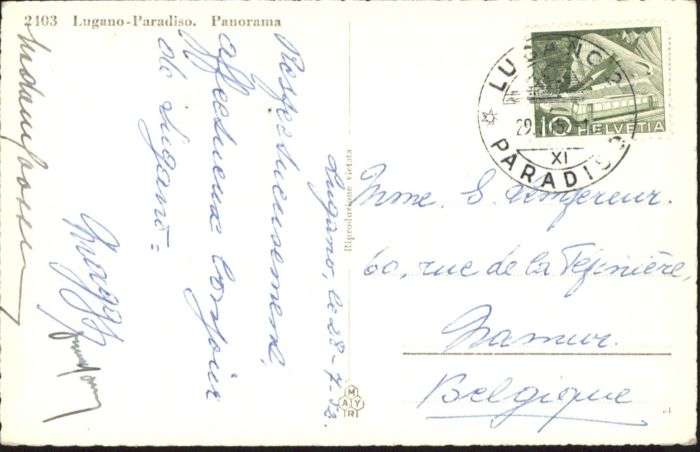 2103 Lugano-Paradiso. Panorama
Lugano, le 28-7-52.
Respectueusement,
affectueux bonjour
de Lugano =
Riproduzione vietata
MAYR
LUGANO 2
29.
XI
PARADISO
10 HELVETIA
Mme. S. Lempereur.
60, rue de la Pépinière,
Namur.
Belgique